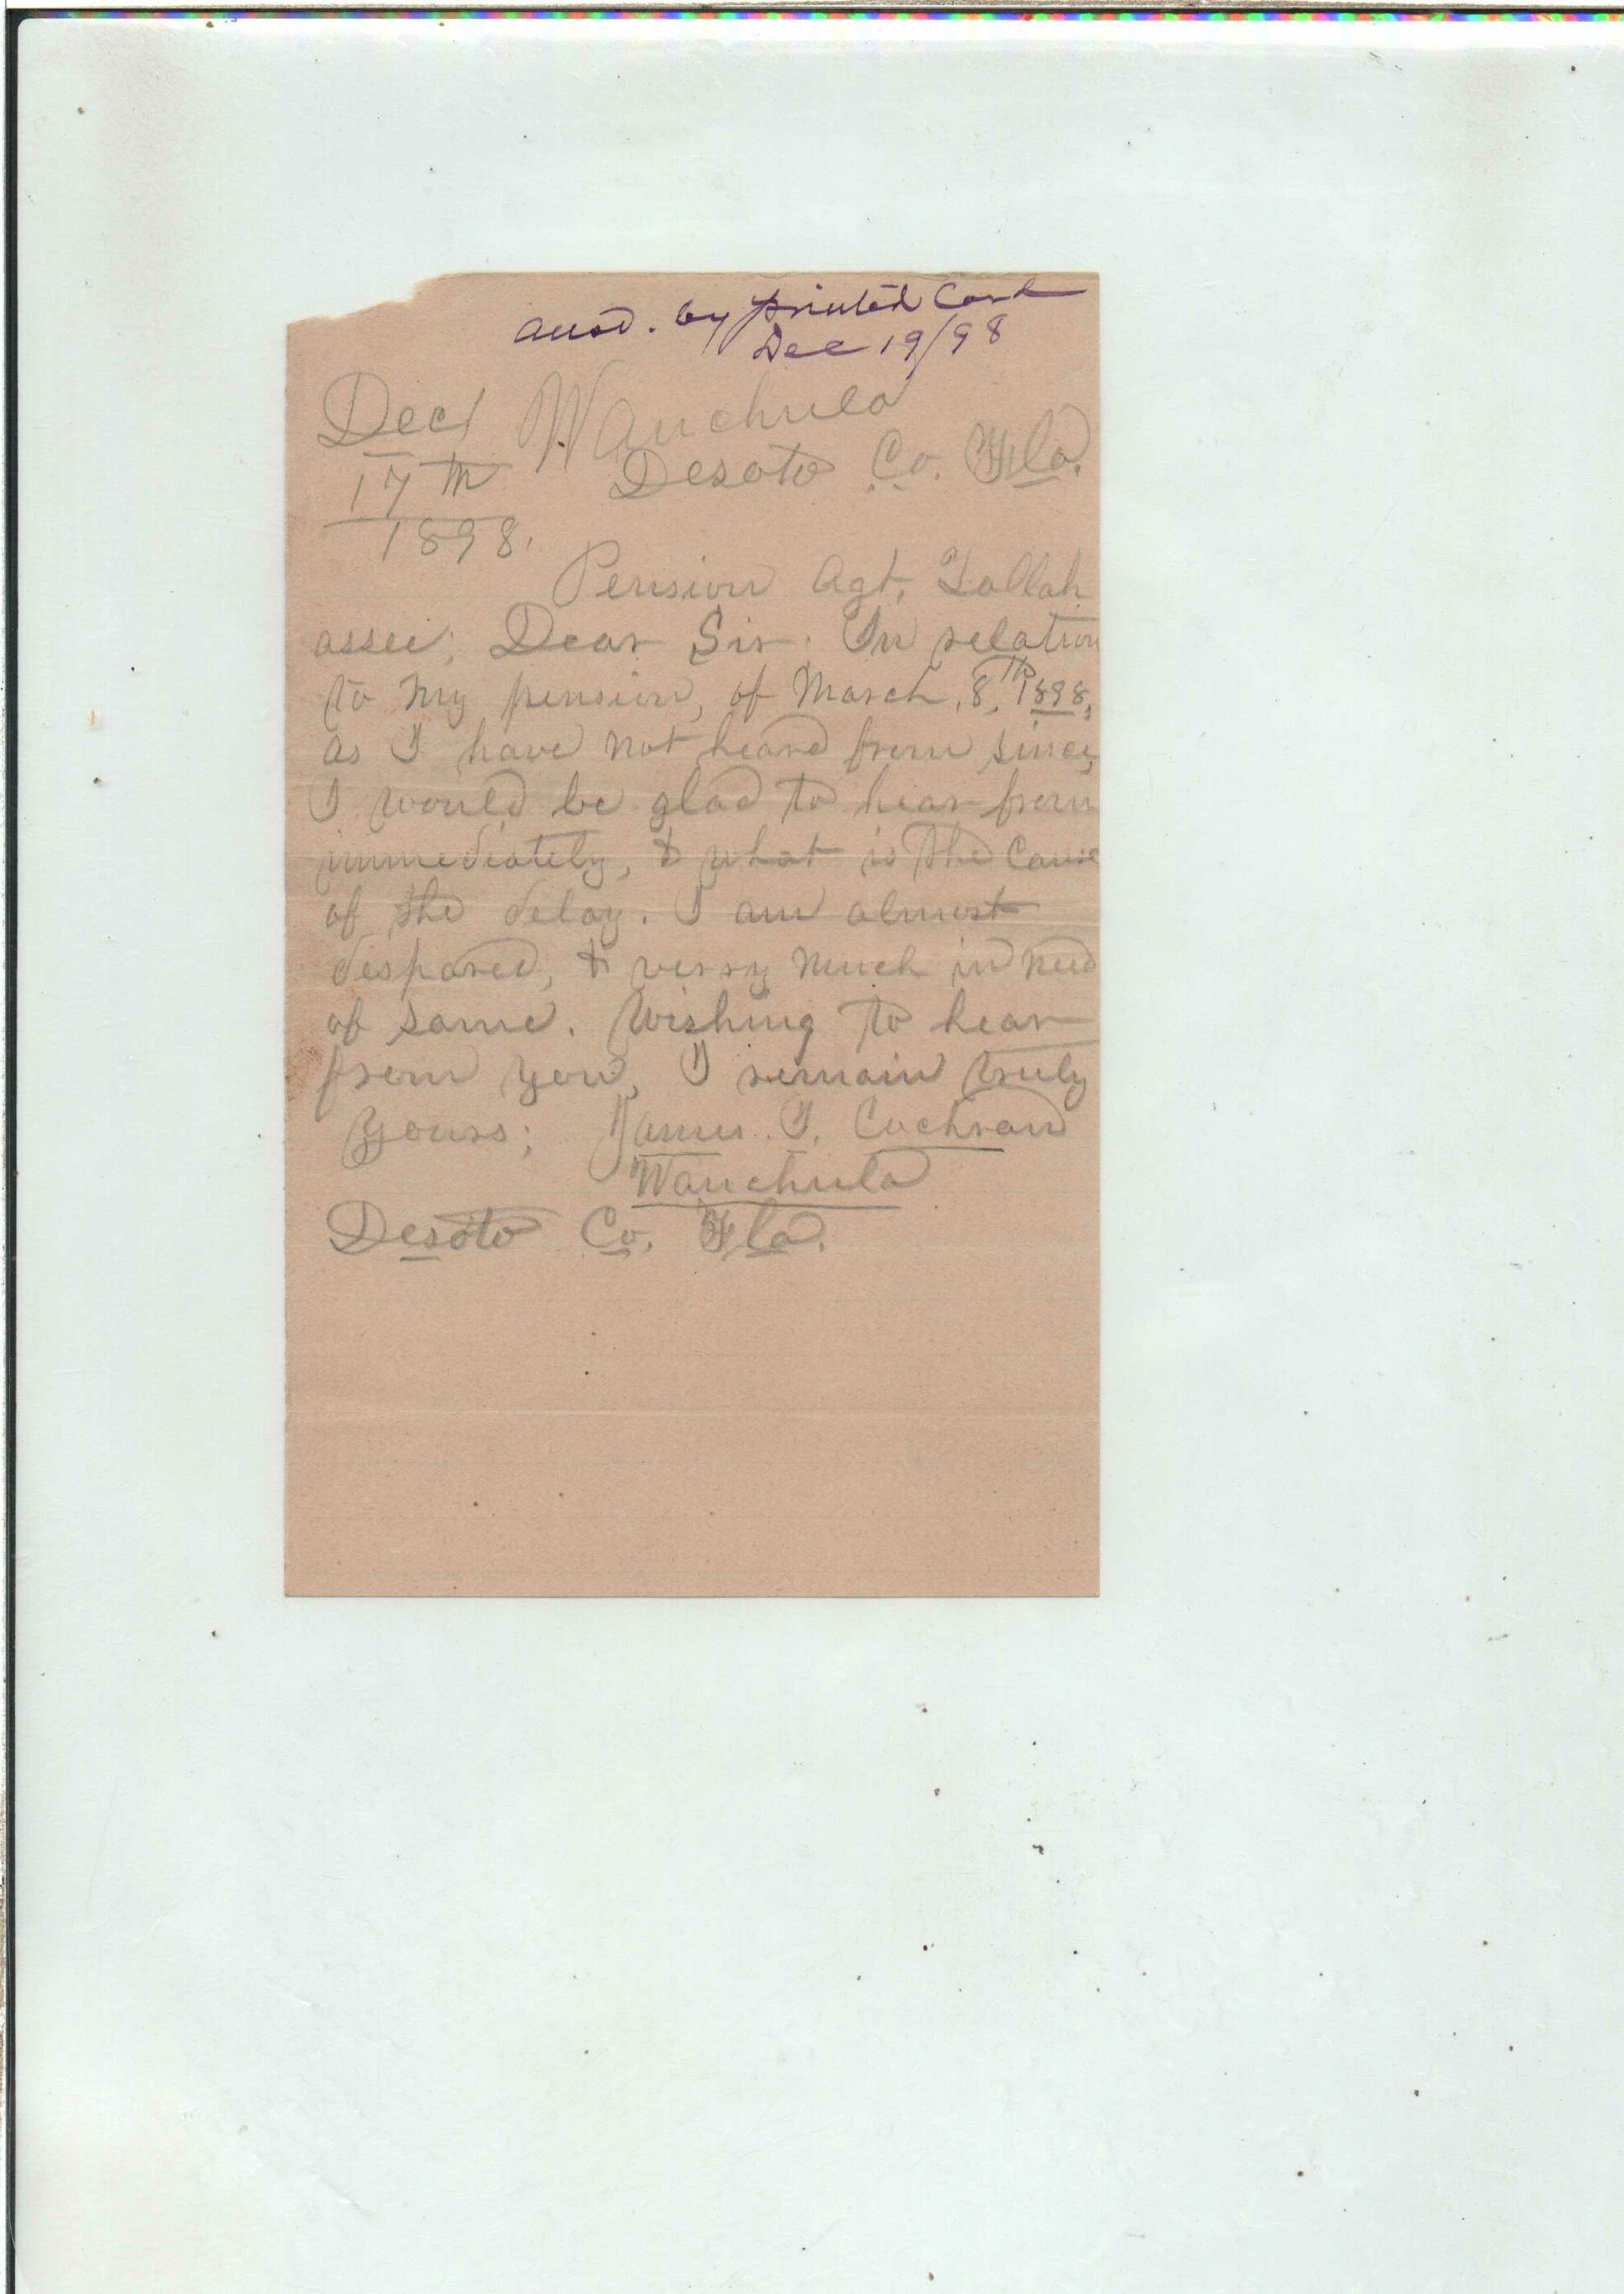 ansd. by printed Card
Dec 19/98
Dec/ Wauchula
17th Desoto Co. Fla.
1898.
Pension Agt, Tallah
assee; Dear Sir. In relation
to my pension, of March, 8th, 1898,
as I have not heard from since,
I would be glad to hear from
immediately, & what is the Cause
of the delay. I am almost
despared, & verry much in need
of same. Wishing to hear
from you, I remain truly
yours; James. T. Cochran
Wauchula
Desoto Co. Fla.